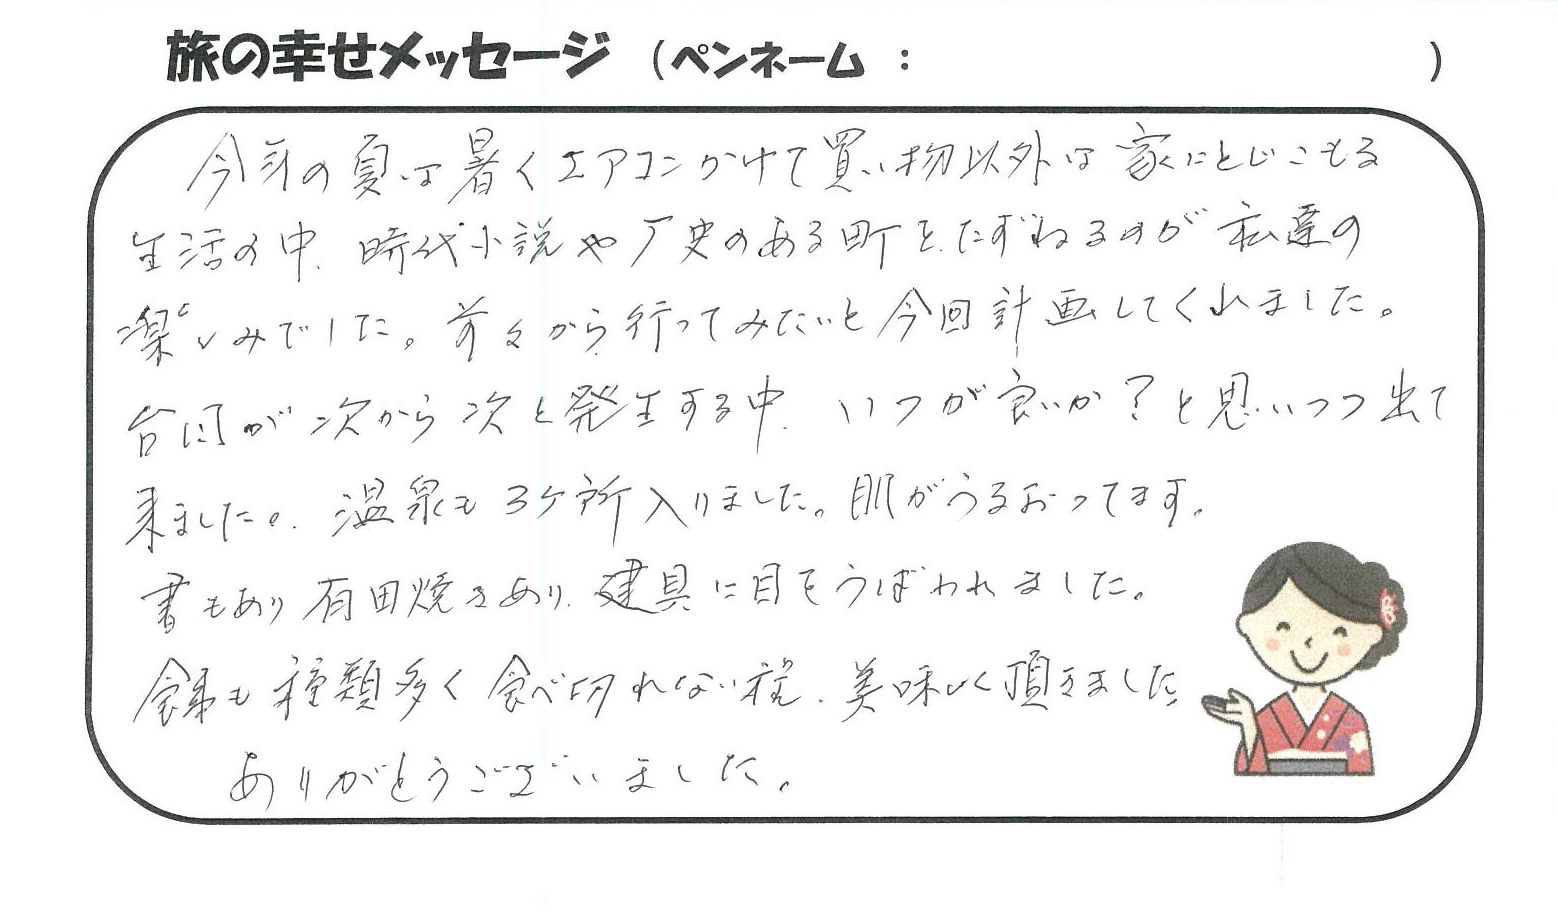 旅の幸せメッセージ （ペンネーム ： ）
今年の夏は暑くエアコンかけて買い物以外は家にとじこもる
生活の中、時代小説や歴史のある町をたずねるのが私達の
楽しみでした。前々から行ってみたいと今回計画してくれました。
台風が次から次と発生する中、いつが良いか？と思いつつ出て
来ました。温泉も3ケ所入りました。肌がうるおってます。
書もあり有田焼きあり、建具に目をうばわれました。
食事も種類多く食べ切れない程、美味しく頂きました
ありがとうございました。